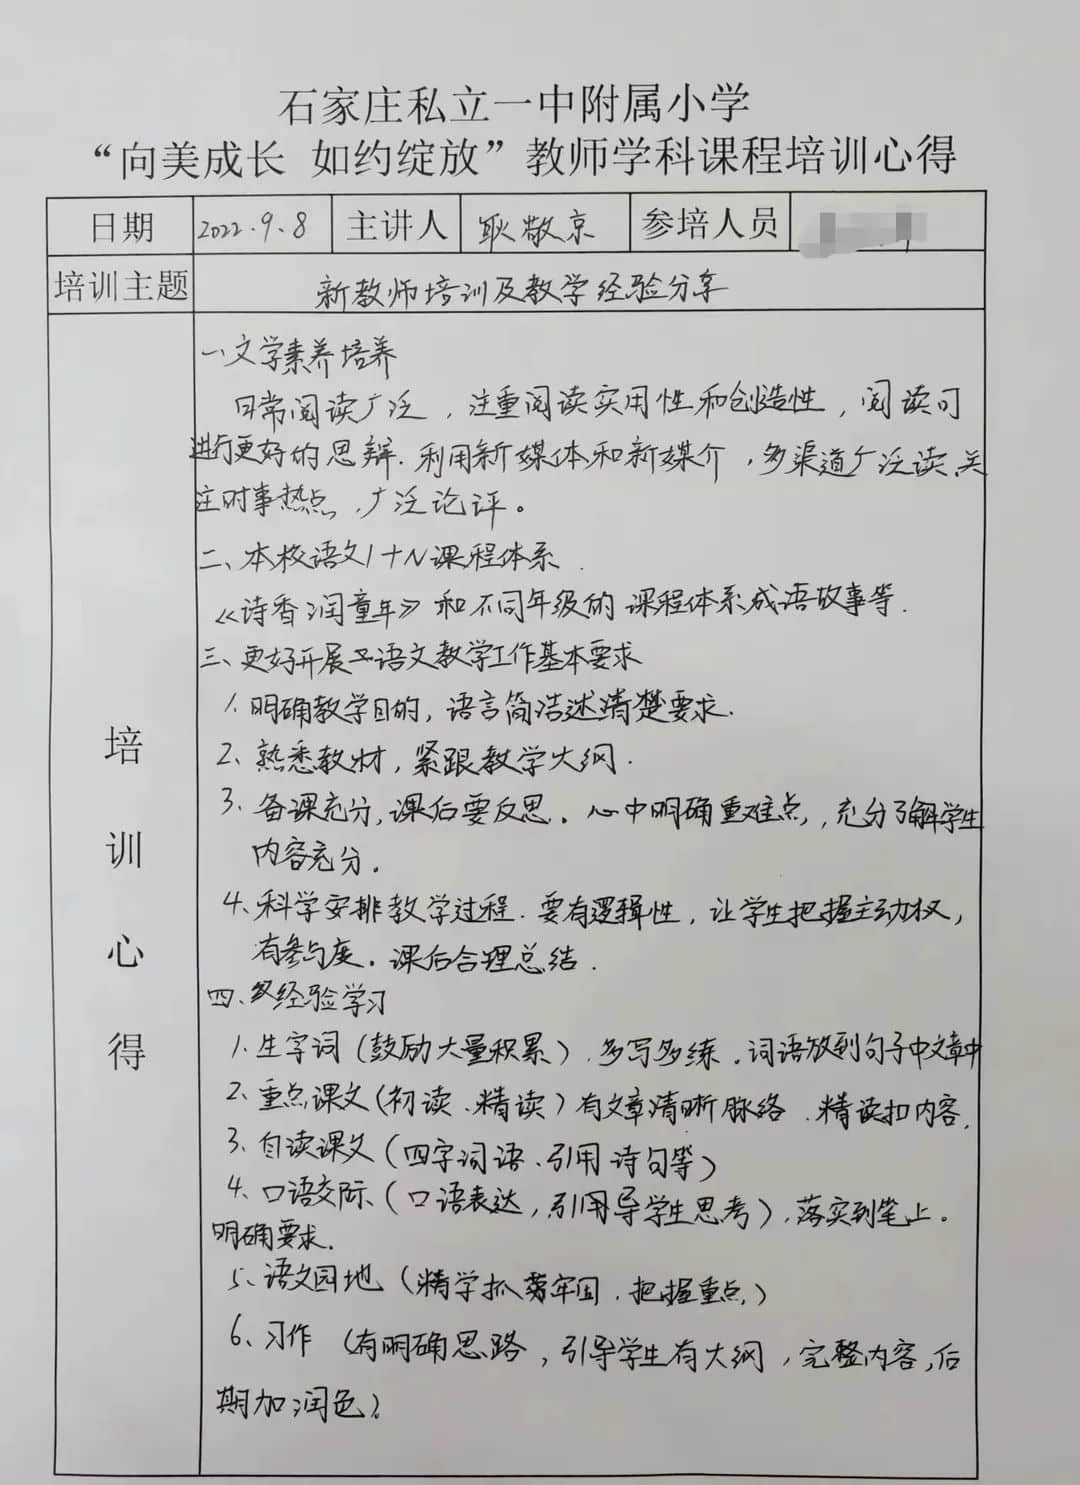 石家庄私立一中附属小学
“向美成长 如约绽放”教师学科课程培训心得
日期 2022.9.8 主讲人 耿敬京 参培人员
培训主题 新教师培训及教学经验分享
培训心得
一、文学素养培养
日常阅读广泛，注重阅读实用性和创造性，阅读可
进行更好的思辩.利用新媒体和新媒介，多渠道广泛读、关
注时事热点，广泛论评。
二、本校语文1+N课程体系.
《诗香润童年》和不同年级的课程体系成语故事等.
三、更好开展语文教学工作基本要求
1.明确教学目的，语言简洁述清楚要求.
2.熟悉教材，紧跟教学大纲.
3.备课充分，课后要反思。心中明确重难点，充分了解学生
内容充分.
4.科学安排教学过程.要有逻辑性，让学生把握主动权，
有参与度.课后合理总结.
四、经验学习
1.生字词（鼓励大量积累）.多写多练.词语放到句子中文章中
2.重点课文（初读、精读）有文章清晰脉络.精读扣内容.
3.自读课文（四字词语、引用诗句等）
4.口语交际（口语表达，引用导学生思考），落实到笔上。
明确要求.
5.语文园地（精学抓牢固.把握重点）
6.习作（有明确思路，引导学生有大纲，完整内容，后
期加润色）.